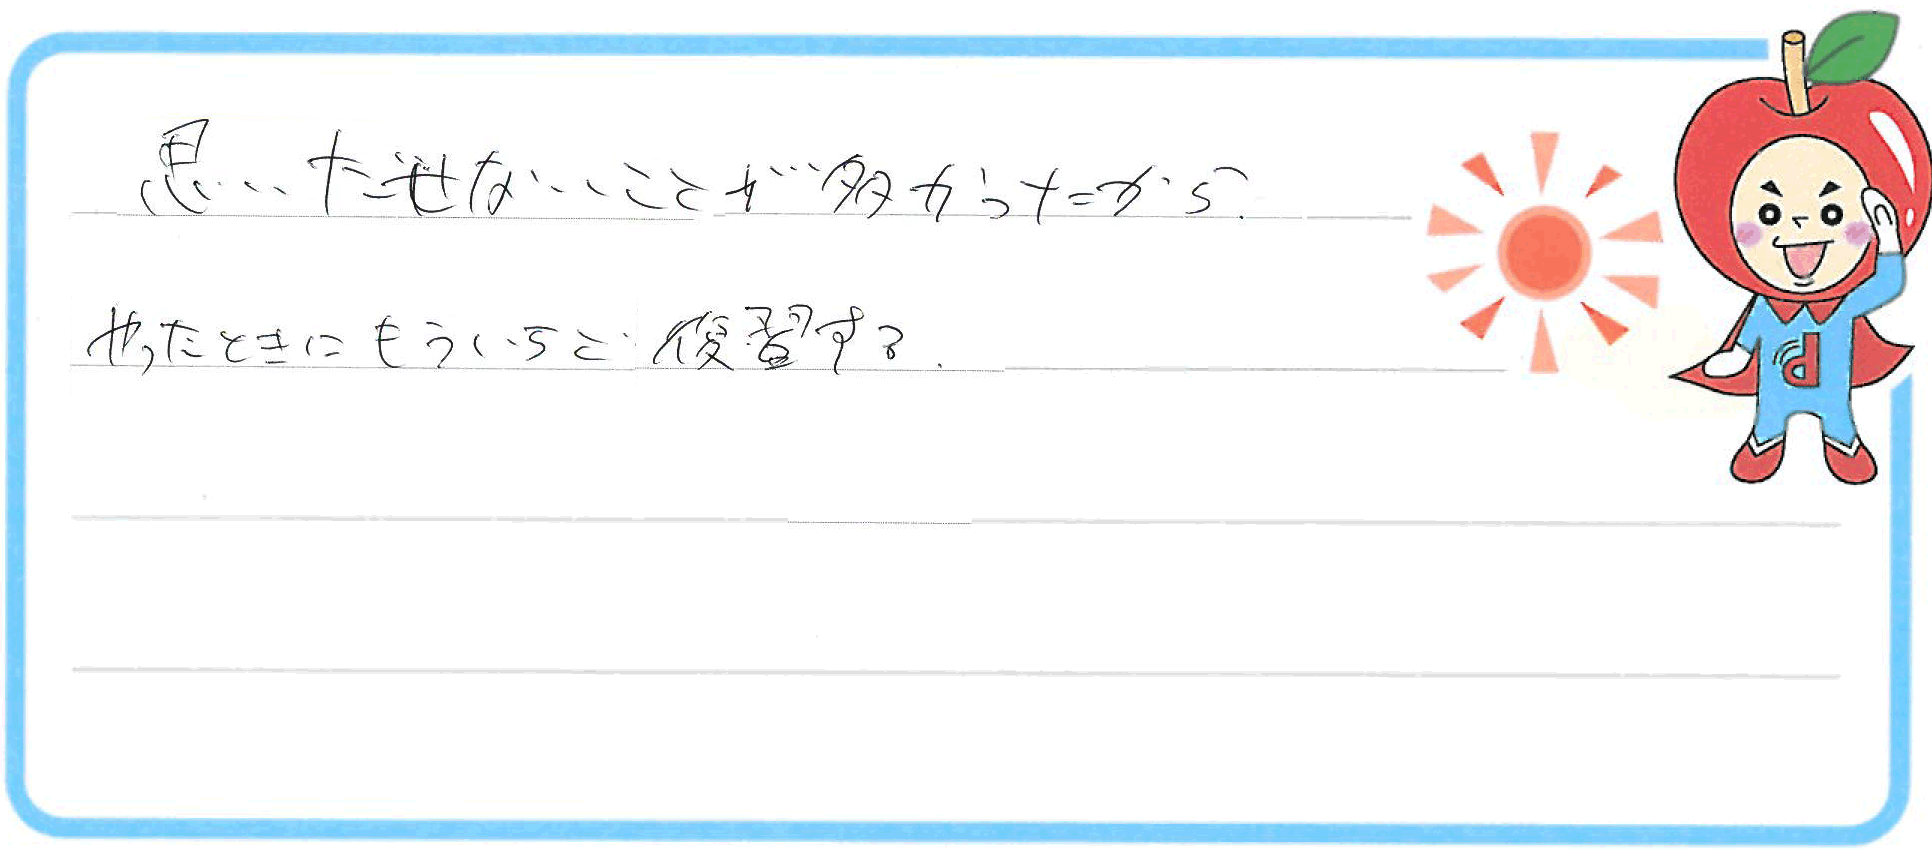 思いだせないことが多かったから.
やったときにもういちど復習する.